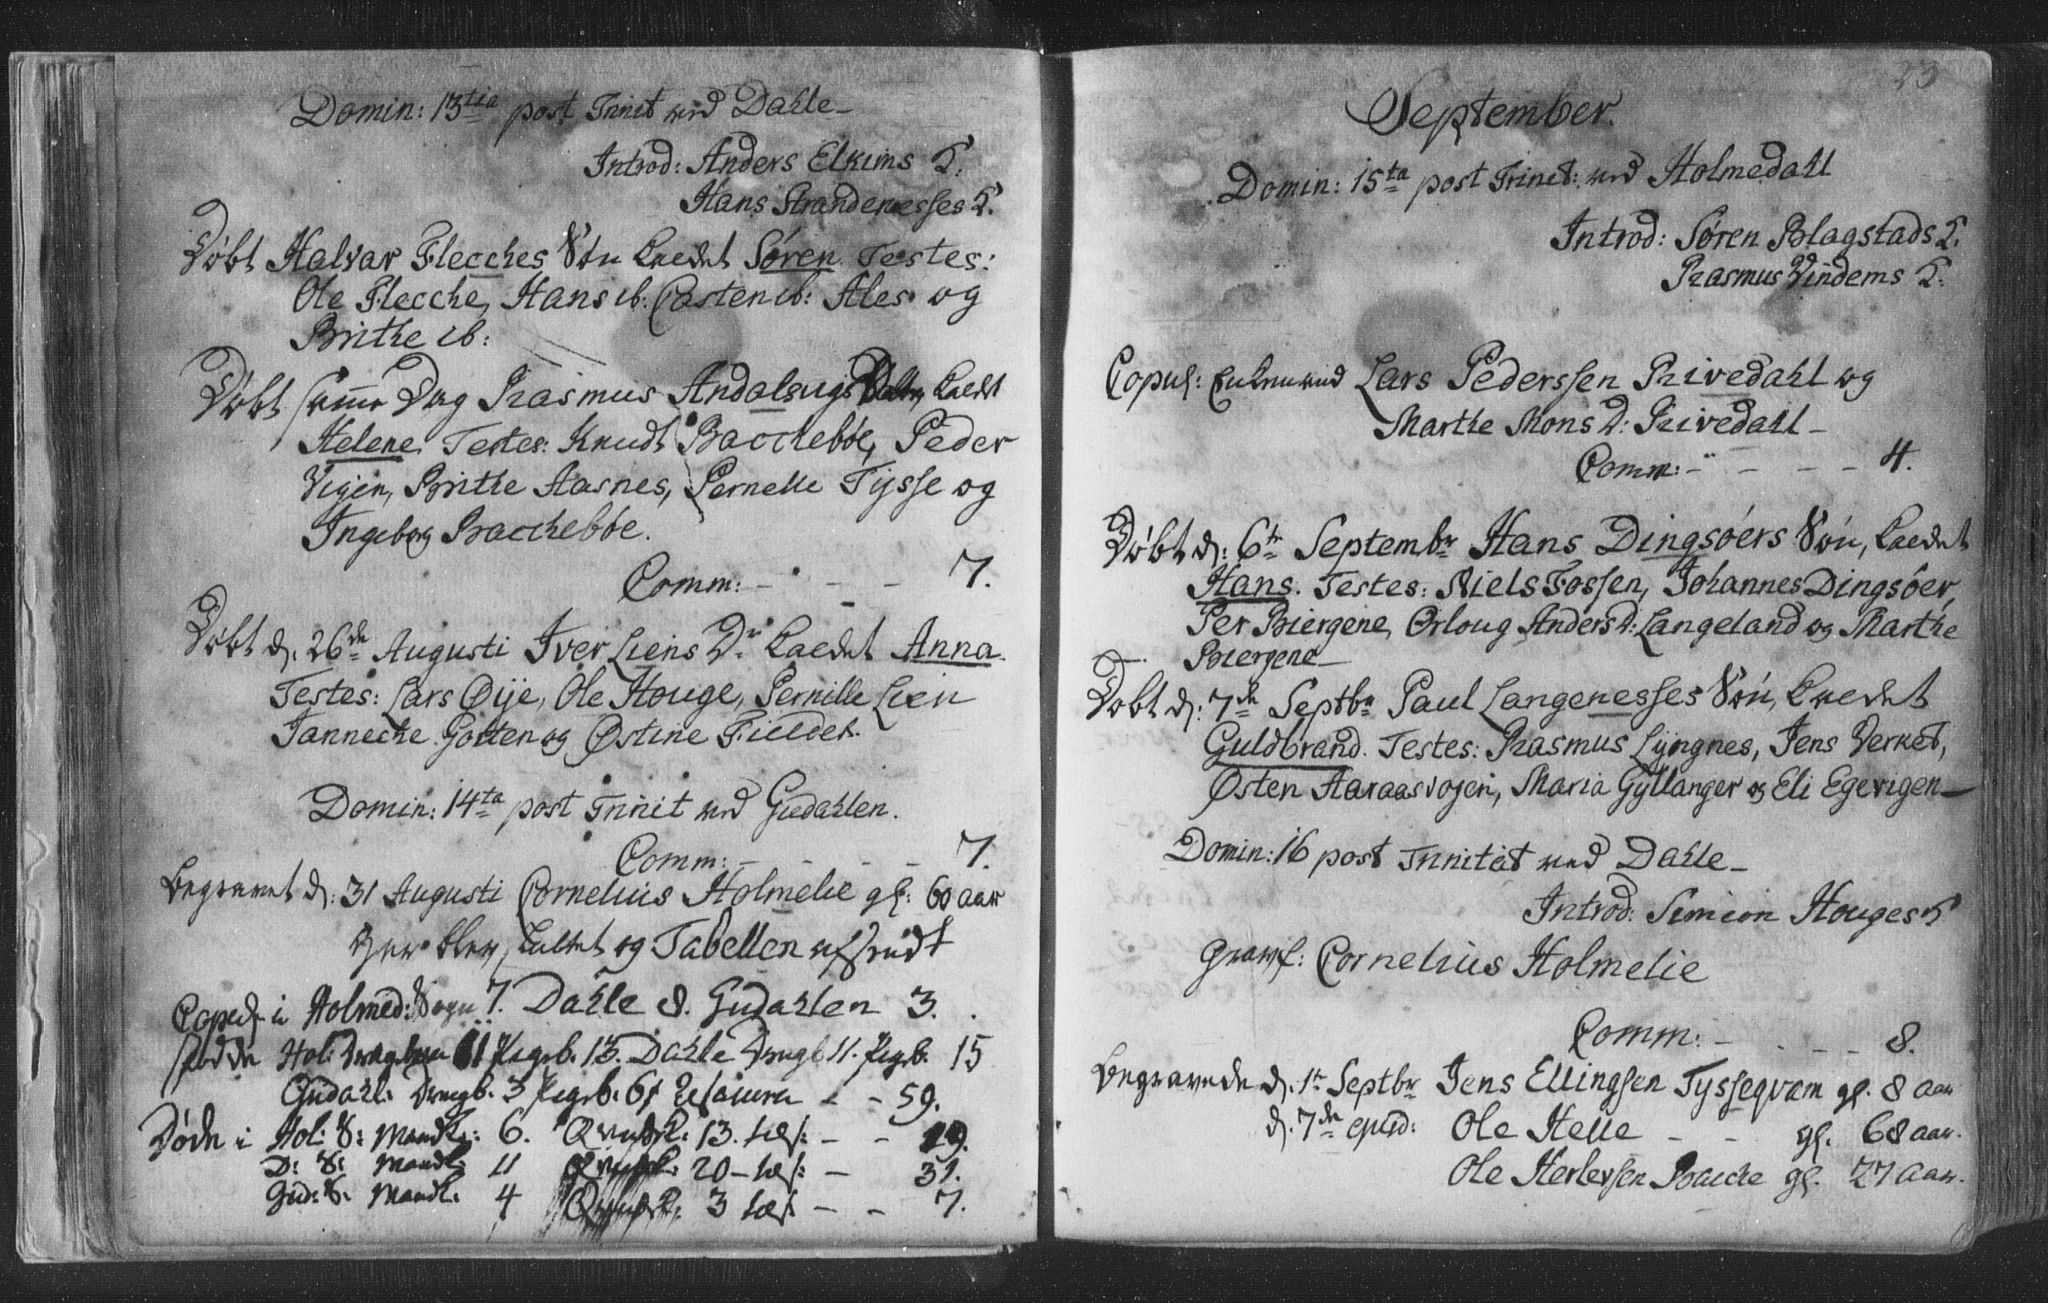 Domin: 13tia post Trinit ved Dahle
Introd: Anders Elkims K:
Hans Strandenesses K.
Døbt Halvar Flecches Søn kaldet Søren. Testes:
Ole Flecche, Hans ib: Casten ib: Ales og
Brithe ib:
Døbt samme Dag Rasmus Andalsugs Datter kaldt
Helene. Testes: Knudt Bacchebøe, Peder
Vigen, Brithe Aarnes, Pernelle Tysse og
Ingeborg Bacchebøe.
Comm: - - - - 7.
Døbt d. 26de Augusti Iver Liens Dr kaldet Anna.
Testes: Lars Øije, Ole Houge, Pernille Lien
Jannecke Gotten og Østine Fieldet.
Domin: 14ta post Trinit ved Gudahlen.
Comm: - - - - 7.
Begravet d: 31 Augusti Cornelius Holmelie gl: 60 aar
Her blev sluttet og Tabellen afsendt
Copul i Holmed: Sogn 7. Dahle 8. Gudahlen 3.
fødde Hol: Drengbørn 11 Pigeb. 13. Dahle Drengb 11. Pigb. 15
Gudahl. Drengb. 3 Pigeb. 6 - - 59.
Døde i Hol: S: Mandk: 6. Qvindk: 13. - - 19.
D: S: Mandk: 11 Qvindk: 20 - - 31.
Gud: S. Mandk: 4 Qvindk: 3 - - 7.
23
September.
Domin: 15ta post Trinit: ved Holmedahl
Introd: Søren Blagstads K.
Rasmus Vindems K:
Copul: Enkemand Lars Pederssen Rivedahl og
Marthe Mons D: Rivedahl -
Comm: - - - - 4.
Døbt d: 6te Septembr Hans Dingsøers Søn, kaldet
Hans. Testes: Niels Fossen, Johannes Dingsøer,
Per Biergene, Ørloug Anders D: Langeland og Marthe
Biergene -
Døbt d: 7de Septbr Paul Langenesses Søn, kaldet
Guldbrand. Testes: Rasmus Lyngnes, Jens Verket,
Østen Aaraasvogen, Maria Gyllanger og Eli Egevigen -
Domin: 16 post Trinitat ved Dahle -
Introd: Simion Houges K
Gravf: Cornelius Holmelie
Comm: - - - - 8.
Begravede d. 1te Septbr Jens Ellingsen Tysseqvam gl. 8 aar
d. 7de ejusd: Ole Helle - - gl. 68 aar.
Ole Herlevsen Baache gl. 27 Aar.